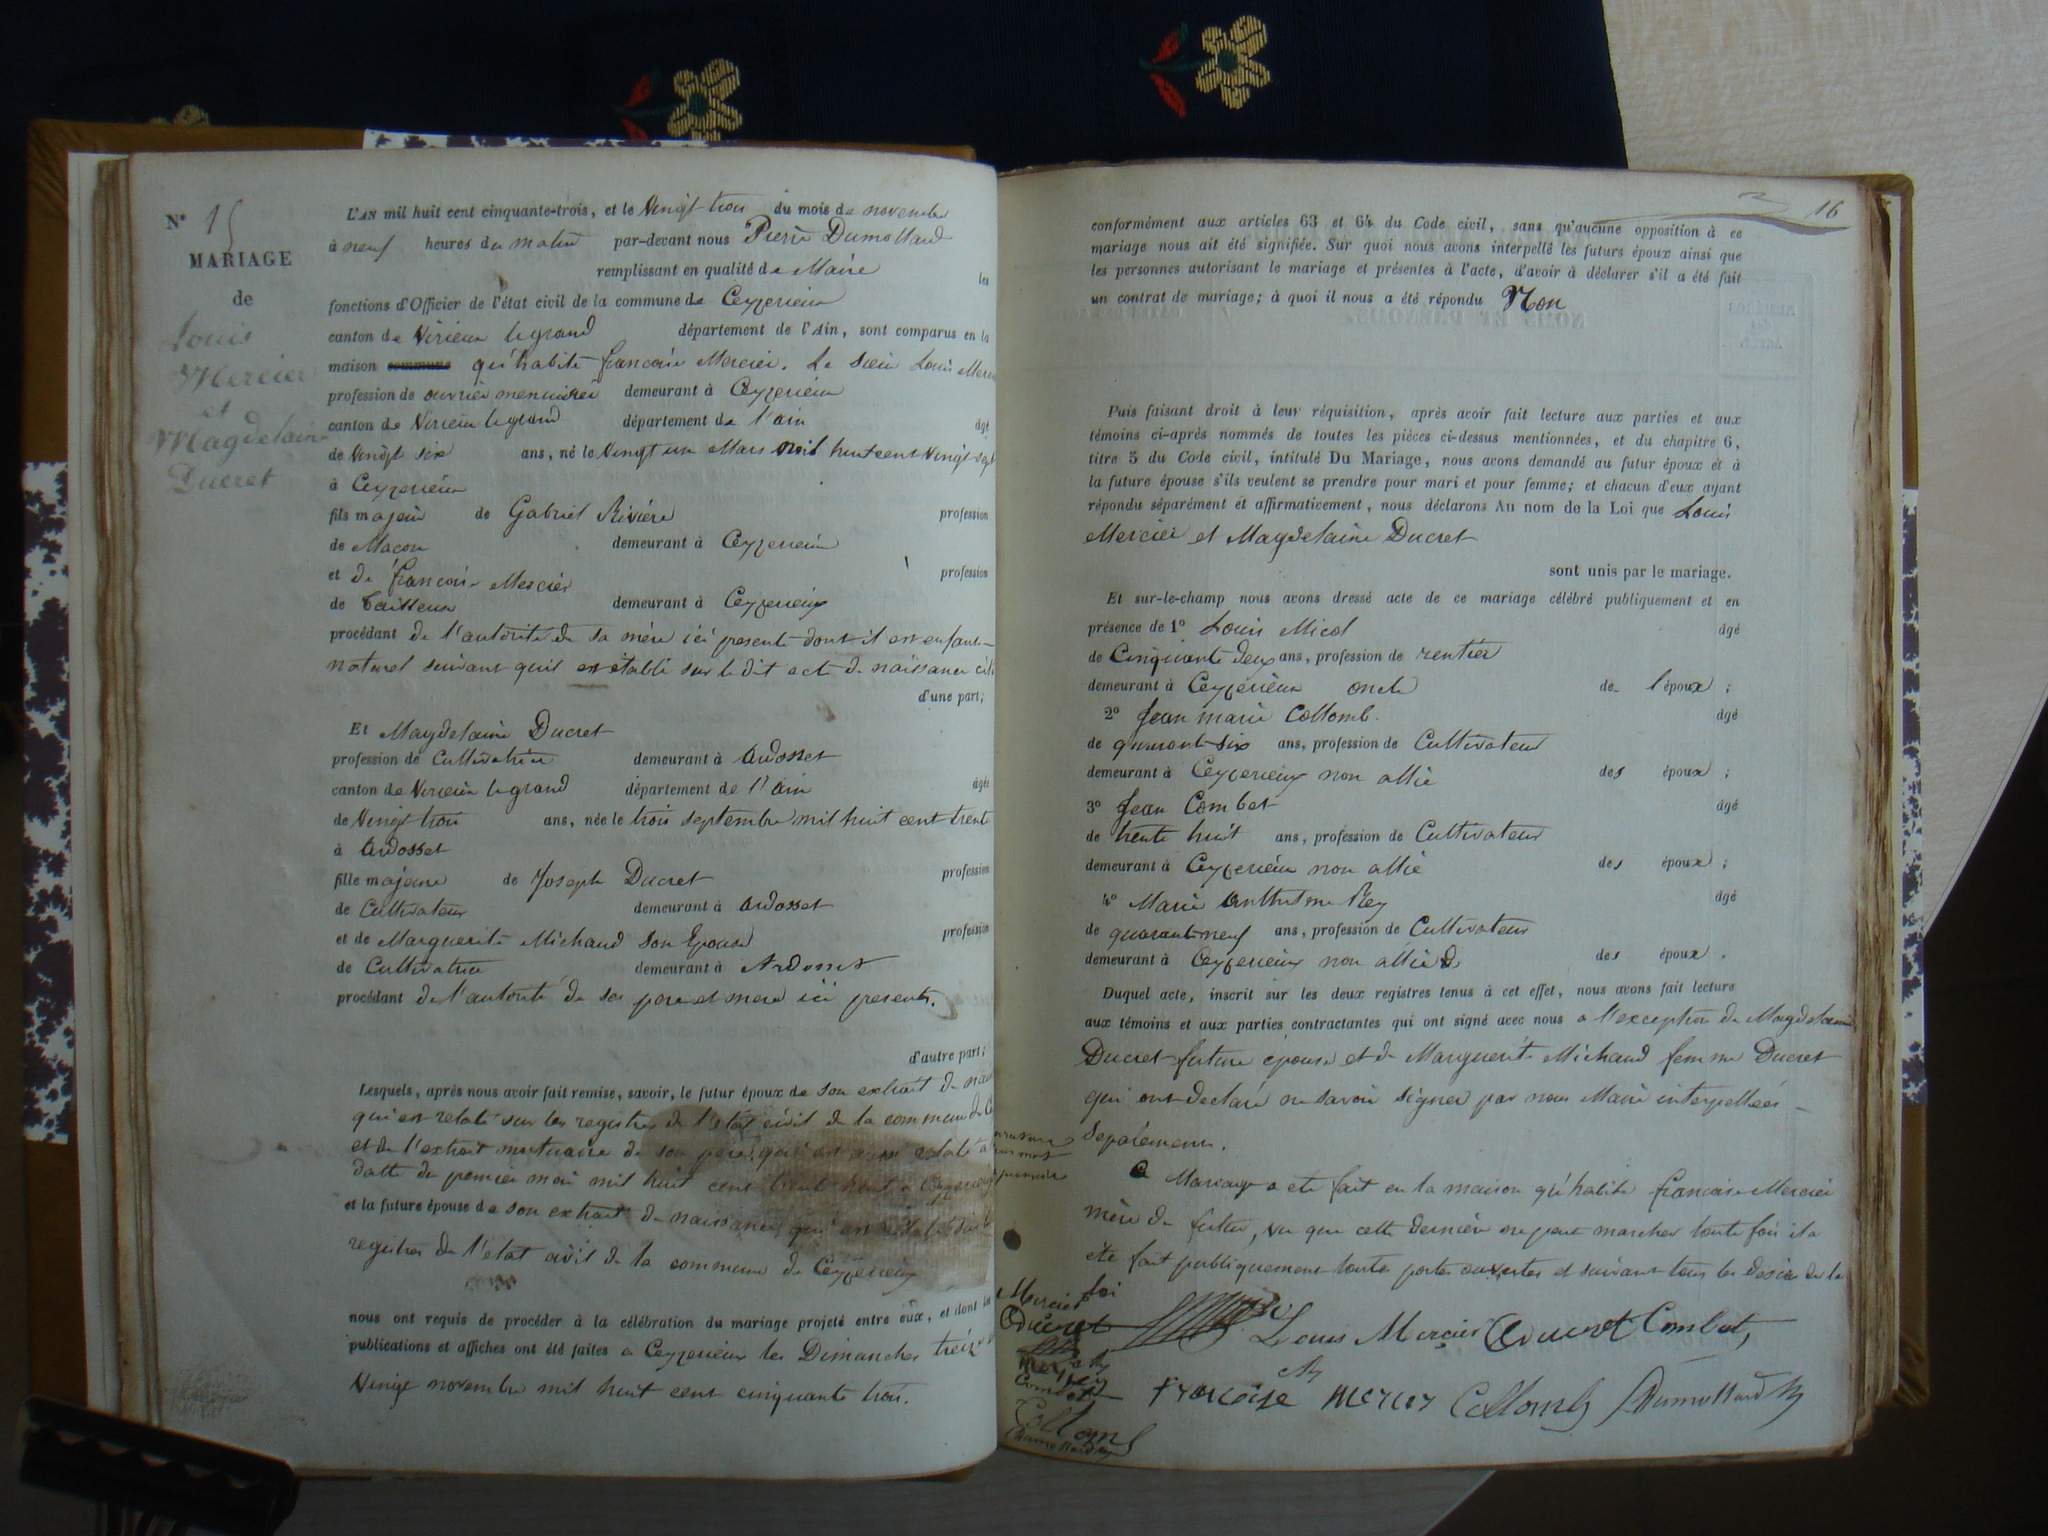 N° 15
MARIAGE
de
Louis
Mercier
et
Magdelaine
Ducret
L'AN mil huit cent cinquante-trois, et le Vingt trois du mois de novembre
à neuf heures du matin par-devant nous Pierre Dumollard
remplissant en qualité de Maire les
fonctions d'Officier de l'état civil de la commune de Ceyzerieux
canton de Virieux legrand département de l'Ain, sont comparus en la
maison commune qu'habite francoise Mercier. Le sieur Louis Mercier
profession de ouvrier menuisier demeurant à Ceyzerieux
canton de Virieux legrand département de l'ain âgé
de Vingt six ans, né le Vingt un Mars mil huit cent Vingt sept
à Ceyzerieux
fils majeur de Gabriel Rivière profession
de Macon demeurant à Ceyzerieux
et de francoise Mercier profession
de tailleur demeurant à Ceyzerieux
procédant de l'autorité de sa mère ici presente dont il est enfant
naturel suivant quil est établi sur le dit acte de naissance
d'une part;
Et Magdelaine Ducret
profession de Cultivatrice demeurant à Ardosset
canton de Virieux legrand département de l'ain âgée
de Vingt trois ans, née le trois septembre mil huit cent trente
à Ardosset
fille majeure de Joseph Ducret profession
de Cultivateur demeurant à Ardosset
et de Marguerite Michaud son Epouse profession
de Cultivatrice demeurant à Ardosset
procédant de l'autorité de ses pere et mere ici presents.
d'autre part;
Lesquels, après nous avoir fait remise, savoir, le futur époux de son extrait de
qui est relaté sur les registres de l'état civil de la commune de
et de l'extrait mortuaire de son pere qui est aussi relaté
datte du premier mai mil huit cent trente huit a Ceyzerieux
et la future épouse de son extrait de naissance qui est relaté sur les
registres de l'état civil de la commune de Ceyzerieux
nous ont requis de procéder à la célébration du mariage projeté entre eux, et dont les
publications et affiches ont été faites a Ceyzerieux les Dimanches treize
Vingt novembre mil huit cent cinquante trois.
16
conformément aux articles 63 et 64 du Code civil, sans qu'aucune opposition à ce
mariage nous ait été signifiée. Sur quoi nous avons interpellé les futurs époux ainsi que
les personnes autorisant le mariage et présentes à l'acte, d'avoir à déclarer s'il a été fait
un contrat de mariage; à quoi il nous a été répondu Non
Puis faisant droit à leur réquisition, après avoir fait lecture aux parties et aux
témoins ci-après nommés de toutes les pièces ci-dessus mentionnées, et du chapitre 6,
titre 5 du Code civil, intitulé Du Mariage, nous avons demandé au futur époux et à
la future épouse s'ils veulent se prendre pour mari et pour femme; et chacun d'eux ayant
répondu séparément et affirmativement, nous déclarons Au nom de la Loi que Louis
Mercier et Magdelaine Ducret
sont unis par le mariage.
Et sur-le-champ nous avons dressé acte de ce mariage célébré publiquement et en
présence de 1° Louis Micol âgé
de Cinquante deux ans, profession de rentier
demeurant à Ceyzerieux oncle de l'époux;
2° Jean marie Collomb. âgé
de quarante six ans, profession de Cultivateur
demeurant à Ceyzerieux non allié des époux;
3° Jean Combet âgé
de trente huit ans, profession de Cultivateur
demeurant à Ceyzerieux non allié des époux;
4° Marie Anthelme Rey âgé
de quarante neuf ans, profession de Cultivateur
demeurant à Ceyzerieux non allié des époux.
Duquel acte, inscrit sur les deux registres tenus à cet effet, nous avons fait lecture
aux témoins et aux parties contractantes qui ont signé avec nous a l'exception de Magdelaine
Ducret future épouse et de Marguerite Michaud femme Ducret
qui ont declaré ne savoir signer par nous Maire interpellées
separement.
Ce Mariage a ete fait en la maison qu'habite francoise Mercier
mère du futur, vu que cette dernière ne peut marcher toute fois il a
été fait publiquement toutes portes ouvertes et suivant tous les desirs de la
loi
Mercier
Ducret
Louis Mercier Ducret Combet
Francoise Mercier Collomb Dumollard
Combet
Collomb
Dumollard